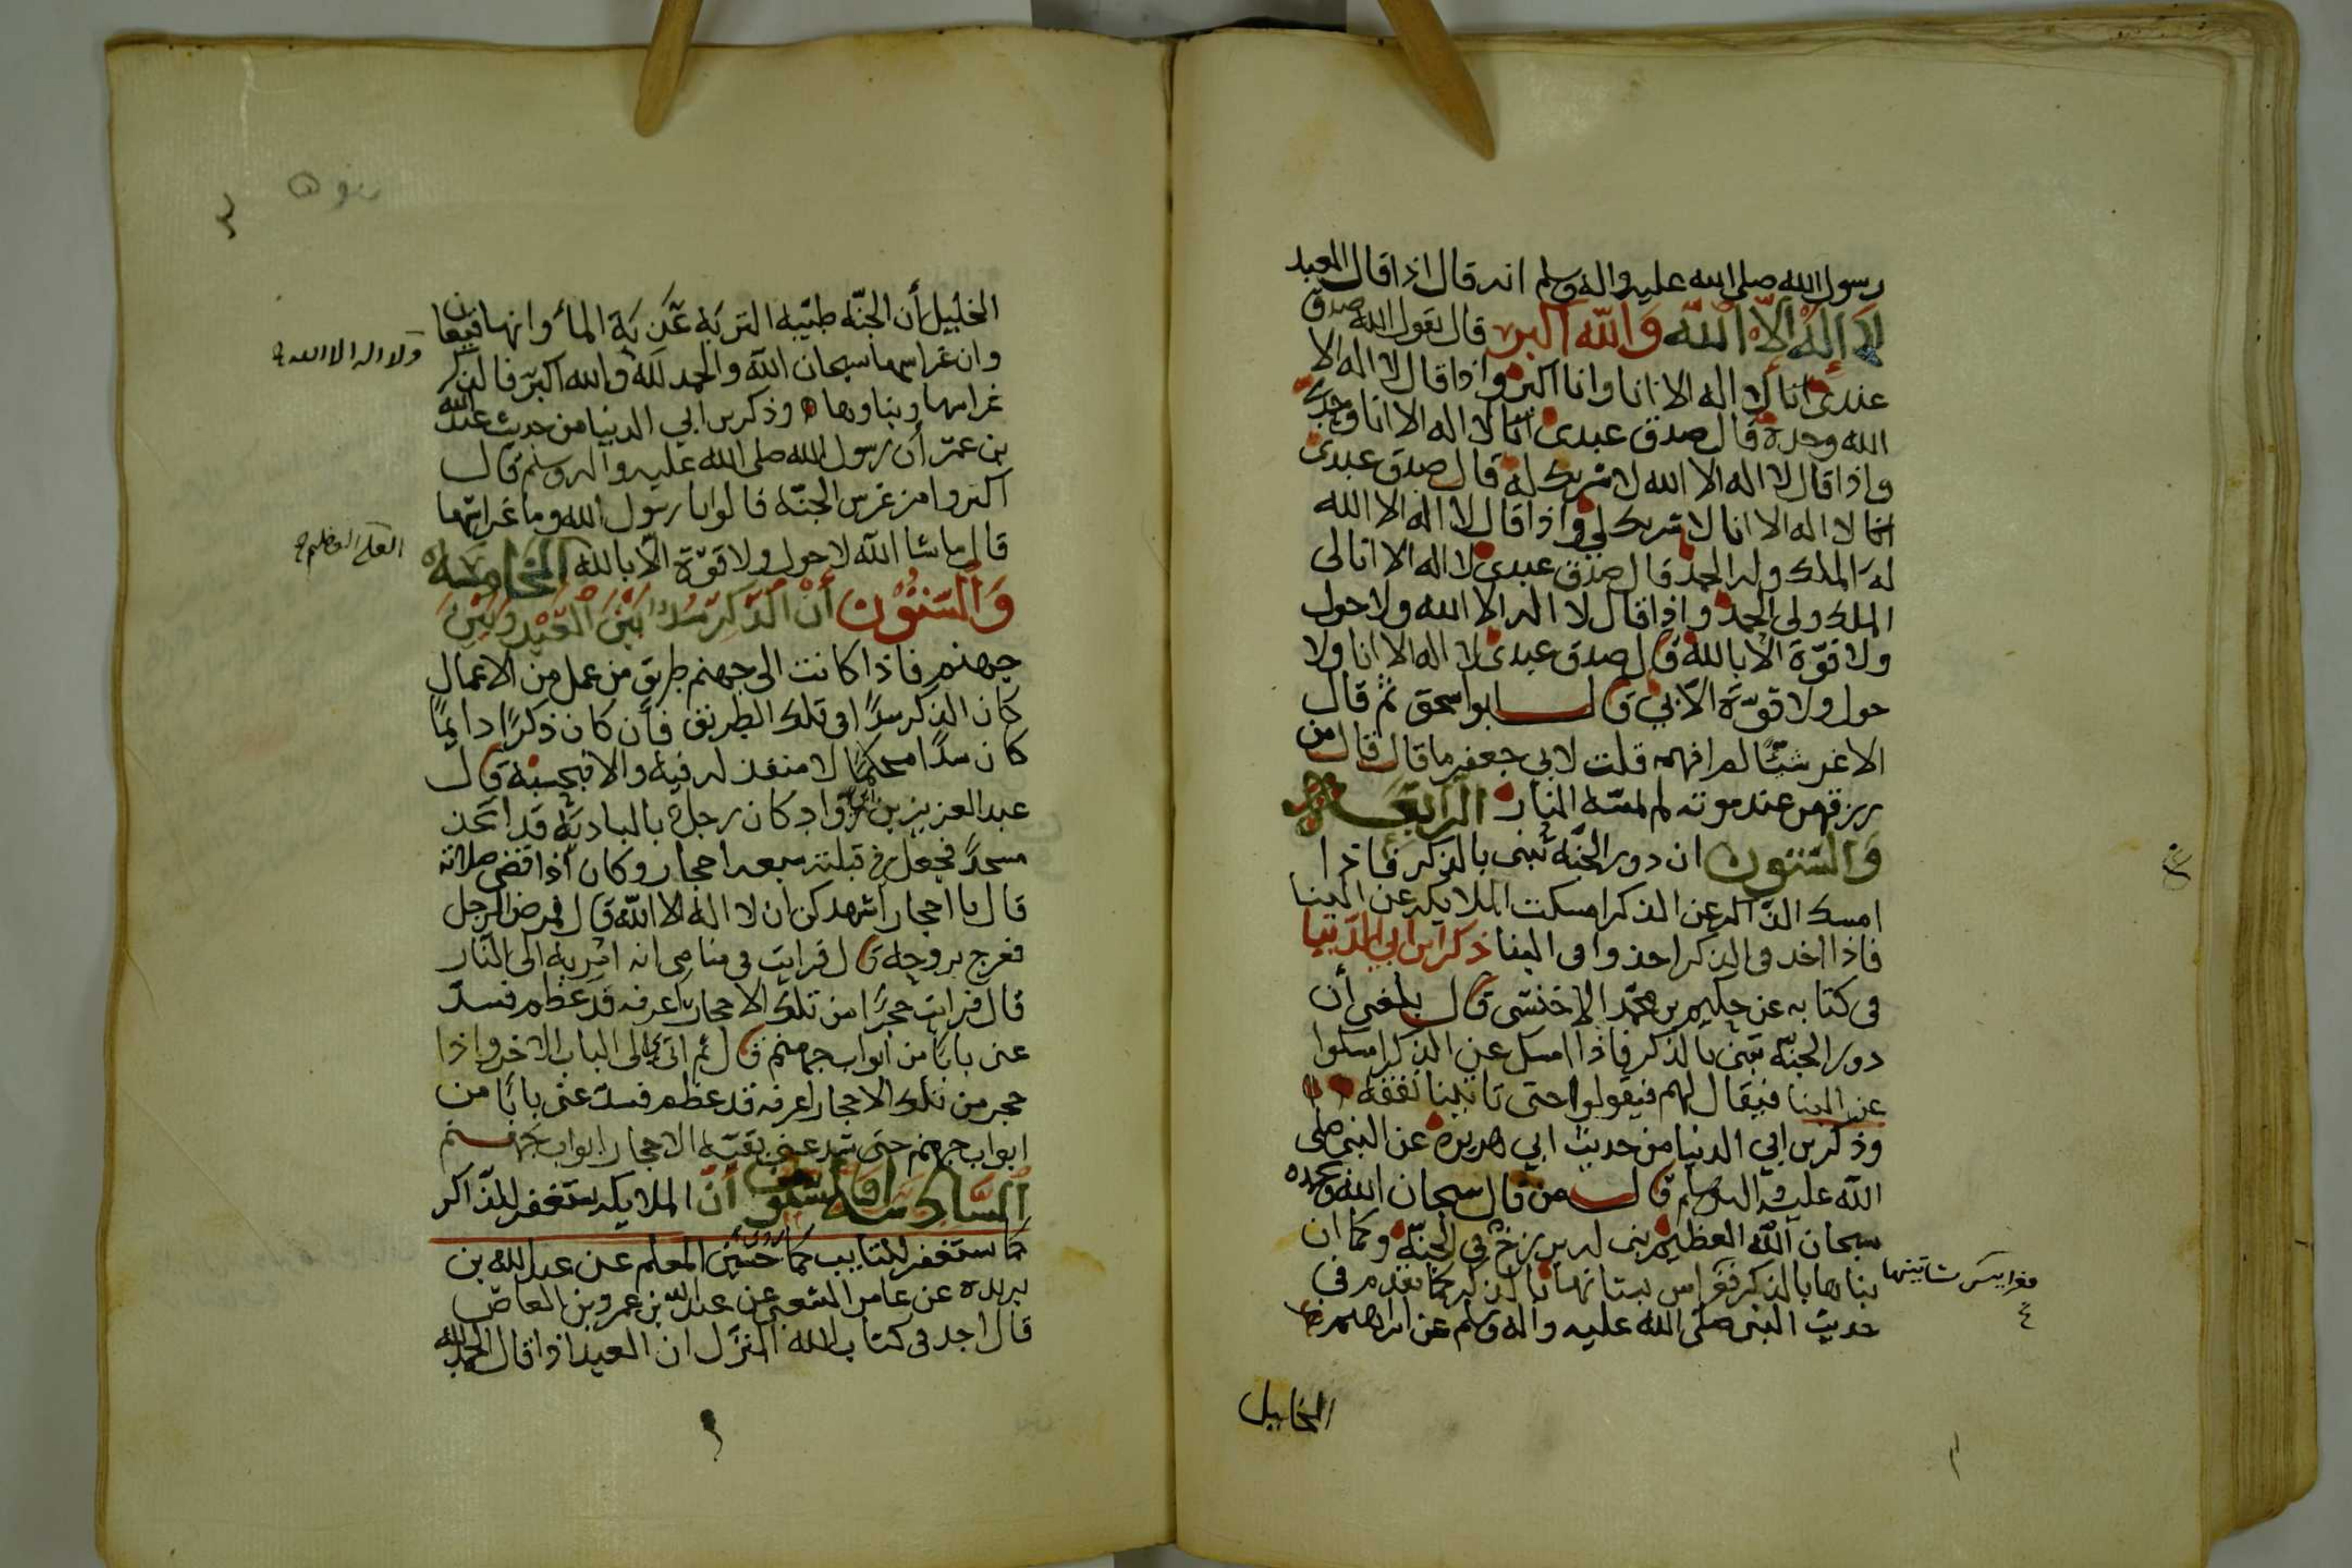 رسول الله صلى الله عليه واله وسلم انه قال اذا قال العبد
لا اله الا الله والله اكبر قال يقول الله صدق
عبدى انا لا اله الا انا وانا اكبر واذا قال لا اله الا
الله وحده قال صدق عبدى انا لا اله الا انا وحدى
واذا قال لا اله الا الله لا شريك له قال صدق عبدى
انا لا اله الا انا لا شريك لي واذا قال لا اله الا الله
له الملك وله الحمد قال صدق عبدى لا اله الا انا لى
الملك ولى الحمد واذا قال لا اله الا الله ولا حول
ولا قوّة الا بالله قال صدق عبدى لا اله الا انا ولا
حول ولا قوّة الاّ بي قال ابو اسحق ثم قال
الاغر شيئًا لم افهمه قلت لابي جعفر ما قال قال من
رزقهن عند موته لم تمسّه النار الرابعة
والستون ان دور الجنّة تُبنى بالذكر فاذا
امسك الذّاكر عن الذكر امسكت الملايكه عن البنا
فاذا اخد في الذكر اخذوا في البنا ذكر ابن ابي الدّنيا
فى كتابه عن حكيم بن محمّد الاخنسى قال بلغنى أن
دور الجنّة تبنى بالذكر فاذا امسك عن الذكر امسكوا
عن البنا فيقال لهم فيقولوا حتى تاتينا نفقه
وذكر بن ابي الدنيا من حديث ابي هريره عن النبي صلى
الله عليه واله وسلم قال من قال سبحان الله وبحمده
سبحان الله العظيم بنى له برج في الجنّة وكما ان
بناها بالذكر فغراس بستانها بالذكر كما تقدم فى
حديث النبى صلى الله عليه واله وسلم عن ابراهيم
الخليل
الخليل أن الجنّه طيّبه التربَة عَذبَة الماء وانها قيعان
وان غراسها سبحان الله والحمد لله والله اكبر فالذكر
ولا اله الا الله
غراسها وبناوها وذكر بن ابي الدنيا من حديث عبد الله
بن عمر أن رسول الله صلى الله عليه واله وسلم قال
اكثروا من غرس الجنّه قالوا يا رسول الله وما غراسها
قال ما شا الله لا حول ولا قوّة الا بالله الخامسة
العلى العظيم
والستون أن الذكر سد بين العبد وبين
جهنم فاذا كانت الى جهنم طريق من عمل من الاعمال
كان الذكر سدًا فى تلك الطريق فأن كان ذكرًا دايمًا
كان سدًا محكمًا لا منفذ له فيه والا فبحسبه قال
عبد العزيز بن ابى رواد كان رجل بالباديَة قد اتخذ
مسجدًا فجعل فى قبلته سبعه احجار وكان اذا قضى صلاته
قال يا احجار اشهدكن ان لا اله الا الله قال فمرض الرجل
فعرج بروحه قال فرايت فى منامى انه امر بي الى النار
قال فرايت حجرًا من تلك الاحجار اعرفه قد عظم فسدّ
عنى بابًا من ابواب جهنم قال ثم اتى بي الى الباب الاخر واذا
حجر من تلك الاحجار اعرفه قد عظم فسدّ عنى بابًا من
ابواب جهنم حتى سد عنى بقيّة الاحجار ابواب جهنم
السادسة والستون أنّ الملايكه تستغفر للذاكر
كما تستغفر للتايب كما روى حسين المعلم عن عبد الله بن
بريده عن عامر الشعبى عن عبد الله بن عمرو بن العاص
قال اجد فى كتاب الله المنزل ان العبد اذا قال الحمد لله